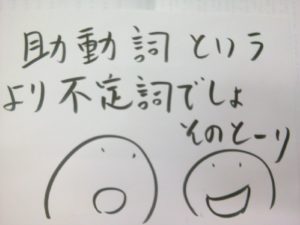 助動詞という
より不定詞でしょ
そのとーり